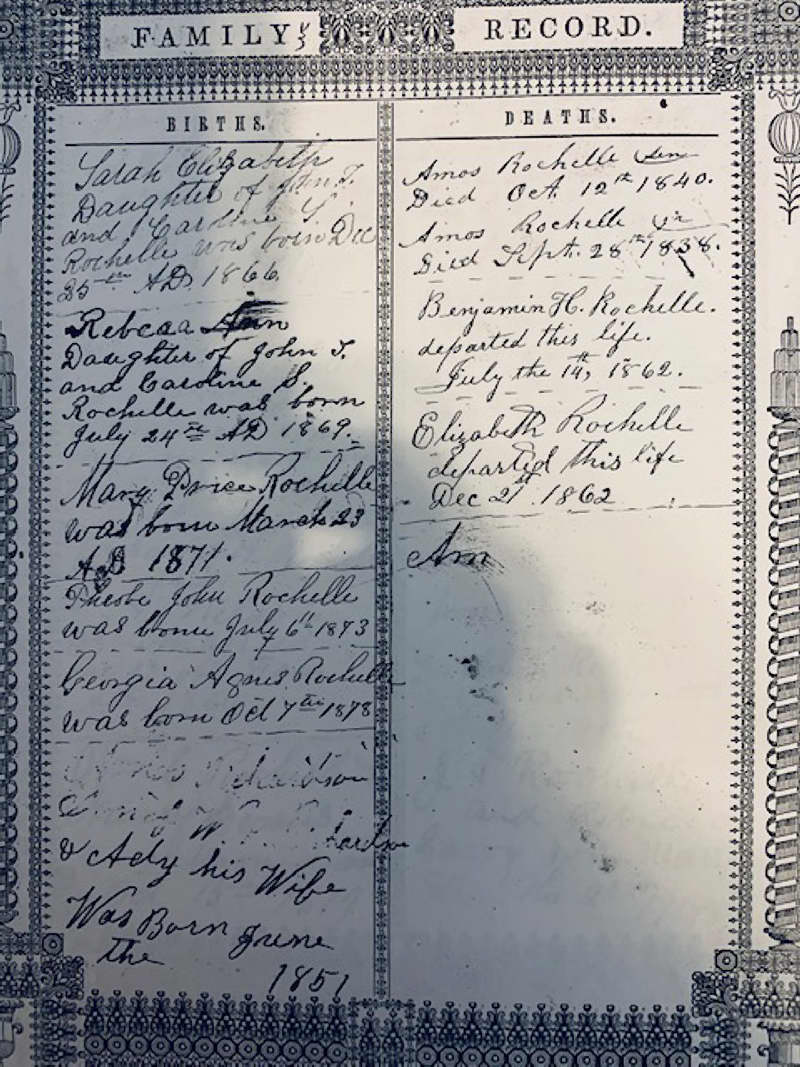 FAMILY RECORD.
BIRTHS.
Sarah Elizabeth
Daughter of John T.
and Caroline S.
Rochelle was born Dec
25th AD 1866.
Rebcaa Ann
Daughter of John T.
and Caroline S.
Rochelle was born
July 24th AD 1869.
Mary Price Rochelle
was born March 23
AD 1871.
Pheobe John Rochelle
was borne July 6th 1873
Georgia Agnes Rochelle
was born Oct 7th 1878
Richardson
W.
& Ady his Wife
Was Born June
the
1851
DEATHS.
Amos Rochelle Sen
Died Oct. 12th 1840.
Amos Rochelle Jr
Died Sept. 28th 1838.
Benjamin H. Rochelle.
departed this life.
July the 14th, 1862.
Elizabeth Rochelle
departed this life
Dec 21st 1862
Am